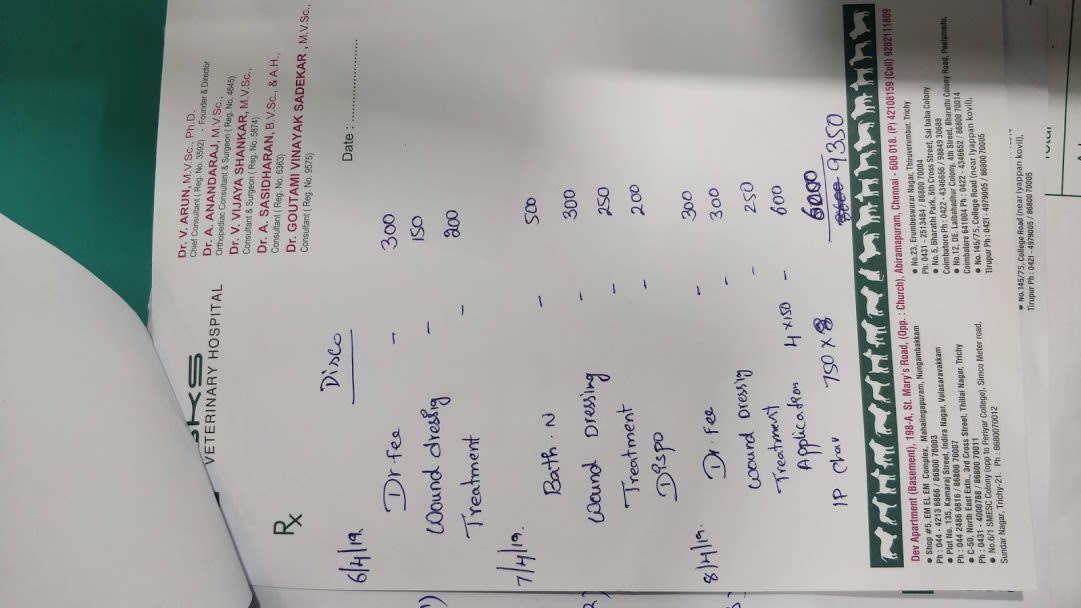 BKS
VETERINARY HOSPITAL
Dr. V. ARUN, M.V.Sc., Ph.D.
Chief Consultant ( Reg. No. 3592) - Founder & Director
Dr. A. ANANDARAJ, M.V.Sc.,
Orthopediac Consultant & Surgeon ( Reg. No. 4845)
Dr. V. VIJAYA SHANKAR, M.V.Sc.,
Consultant & Surgeon ( Reg. No. 5874)
Dr. A. SASIDHARAN, B.V.Sc., & A.H.,
Consultant ( Reg. No. 6363)
Dr. GOUTAMI VINAYAK SADEKAR, M.V.Sc.,
Consultant ( Reg. No. 9575)
Rx
Date : ........................
Disco
6/4/19.
Dr Fee - 300
Wound dressig - 150
Treatment - 200
7/4/19.
Bath. N - 500
Wound Dressing - 300
Treatment - 250
Dispo - 200
8/4/19.
Dr. Fee - 300
Wound Dressig - 300
Treatment - 250
Application 4 x 150 - 600
IP Char 750 x 8 6000
9350
Dev Apartment (Basement), 198-A, St. Mary's Road, (Opp. : Church), Abiramapuram, Chennai - 600 018. (P) 42108159 (Cell) 9282111809
● Shop #5, EM EL EM Complex, Mahalingapuram, Nungambakkam
Ph : 044 - 4213 6866 / 86800 70003
● Plot No. 135, Kamaraj Street, Indira Nagar, Valasaravakkam
Ph : 044 2486 0816 / 86800 70007
● C-50, North East Extn., 3rd Cross Street, Thillai Nagar, Trichy
Ph : 0431 - 4000788 / 86800 70011
● No.6/1 SMESC Colony (opp to Periyar College), Simco Meter road,
Sundar Nagar, Trichy-21. Ph : 8680070012
● No.23, Erumbeeswarar Nagar, Thiruverumbur, Trichy
Ph : 0431 - 2513484 / 86800 70004
● No. 5, Bharathi Park, 5th Cross Street, Sai baba Colony
Coimbatore Ph : 0422 - 4346656 / 98849 30688
● No.12, DE. Lalbahadhur Colony, 4th Street, Bharathi Colony Road, Peelamedu.
Coimbatore 641004 Ph : 0422 - 4346652 / 86800 70014
● No.145/75, College Road (near Iyappan kovil),
Tirupur Ph : 0421 - 4979005 / 86800 70005
● No.145/75, College Road (near Iyappan kovil),
Tirupur Ph : 0421 - 4979005 / 86800 70005
Total